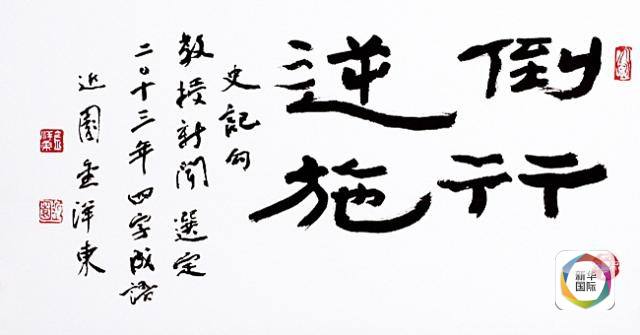 倒行
逆施
史記句
教授新聞 選定
二〇十三年 四字成語
近園 金洋東
新华
国际